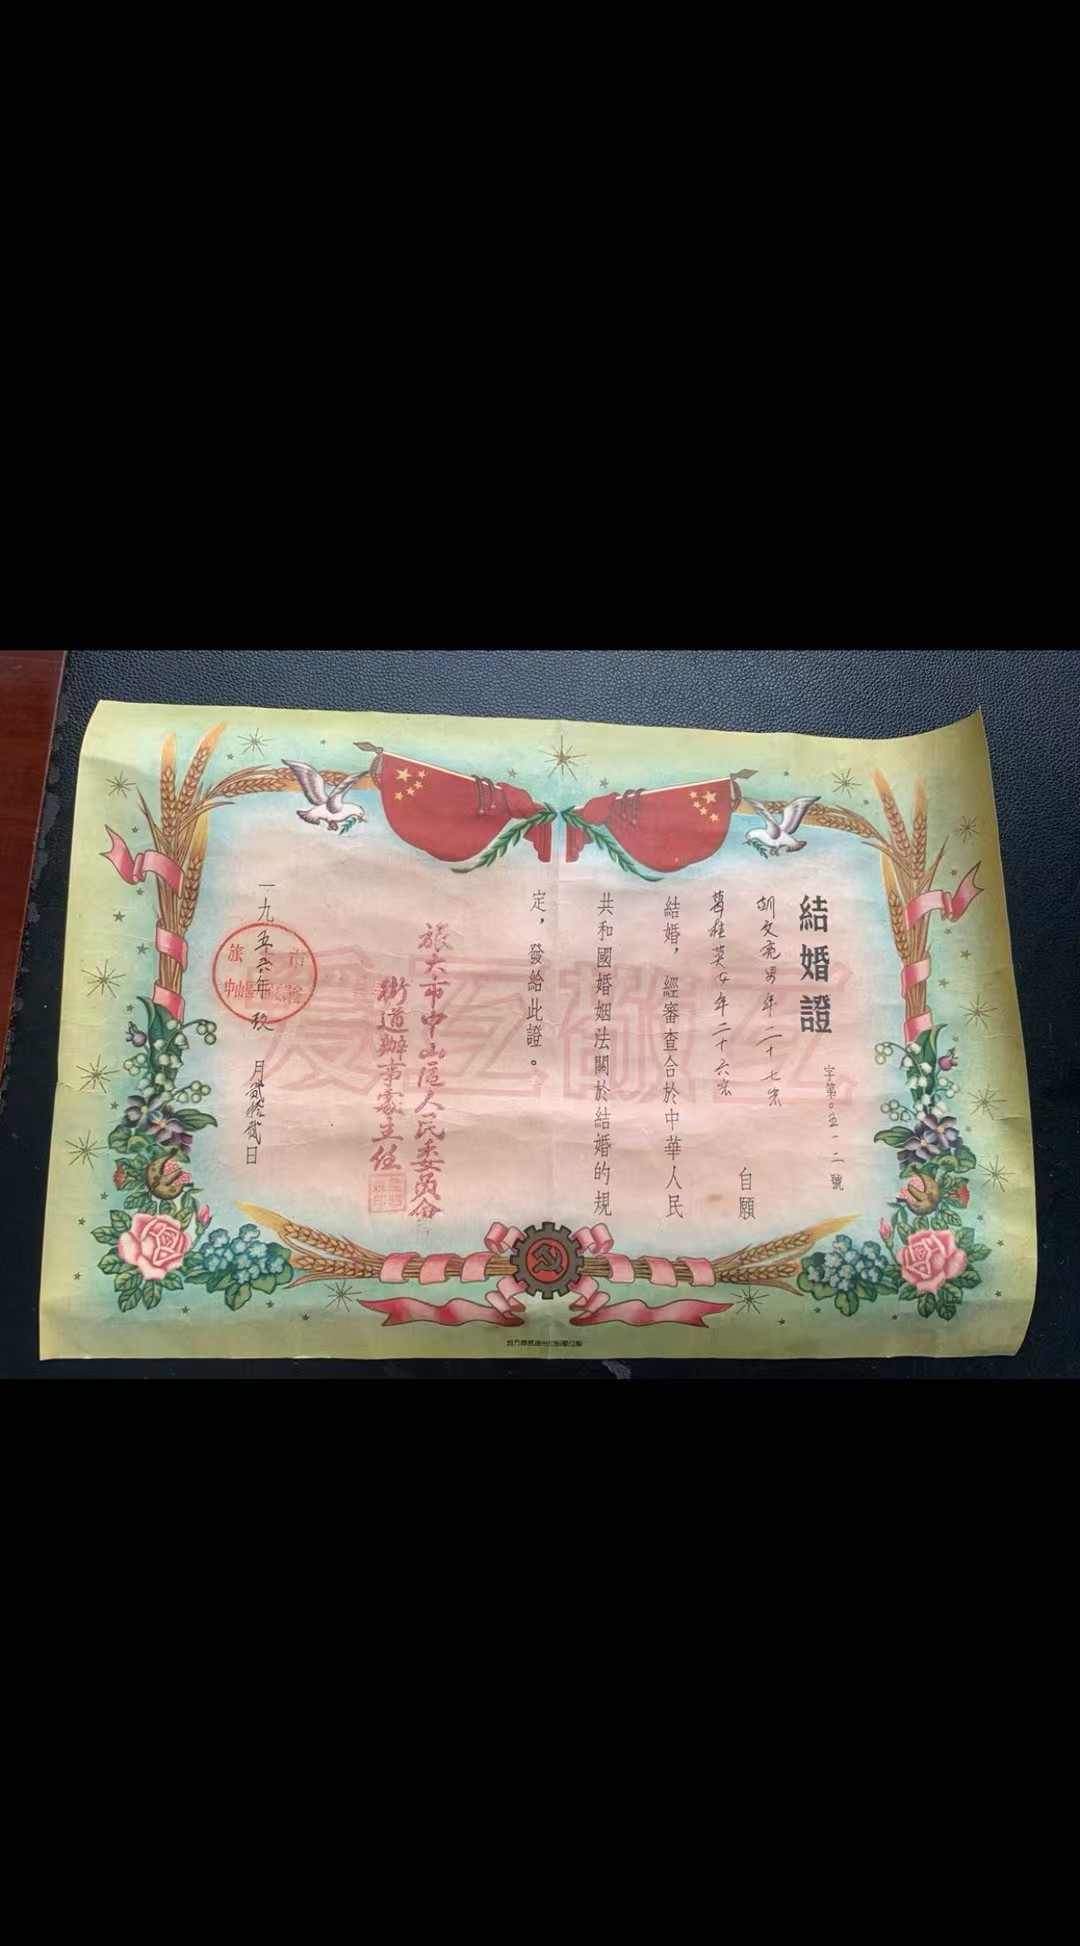 結婚證
字第〇五一二號
胡文亮男年二十七岁
葛桂英女年二十六岁
自願
結婚，經審查合於中華人民
共和國婚姻法關於結婚的規
定，發給此證。
旅大市中山區人民委員會
街道辦事處主任
一九五六年玖月貳拾貳日
互敬互愛